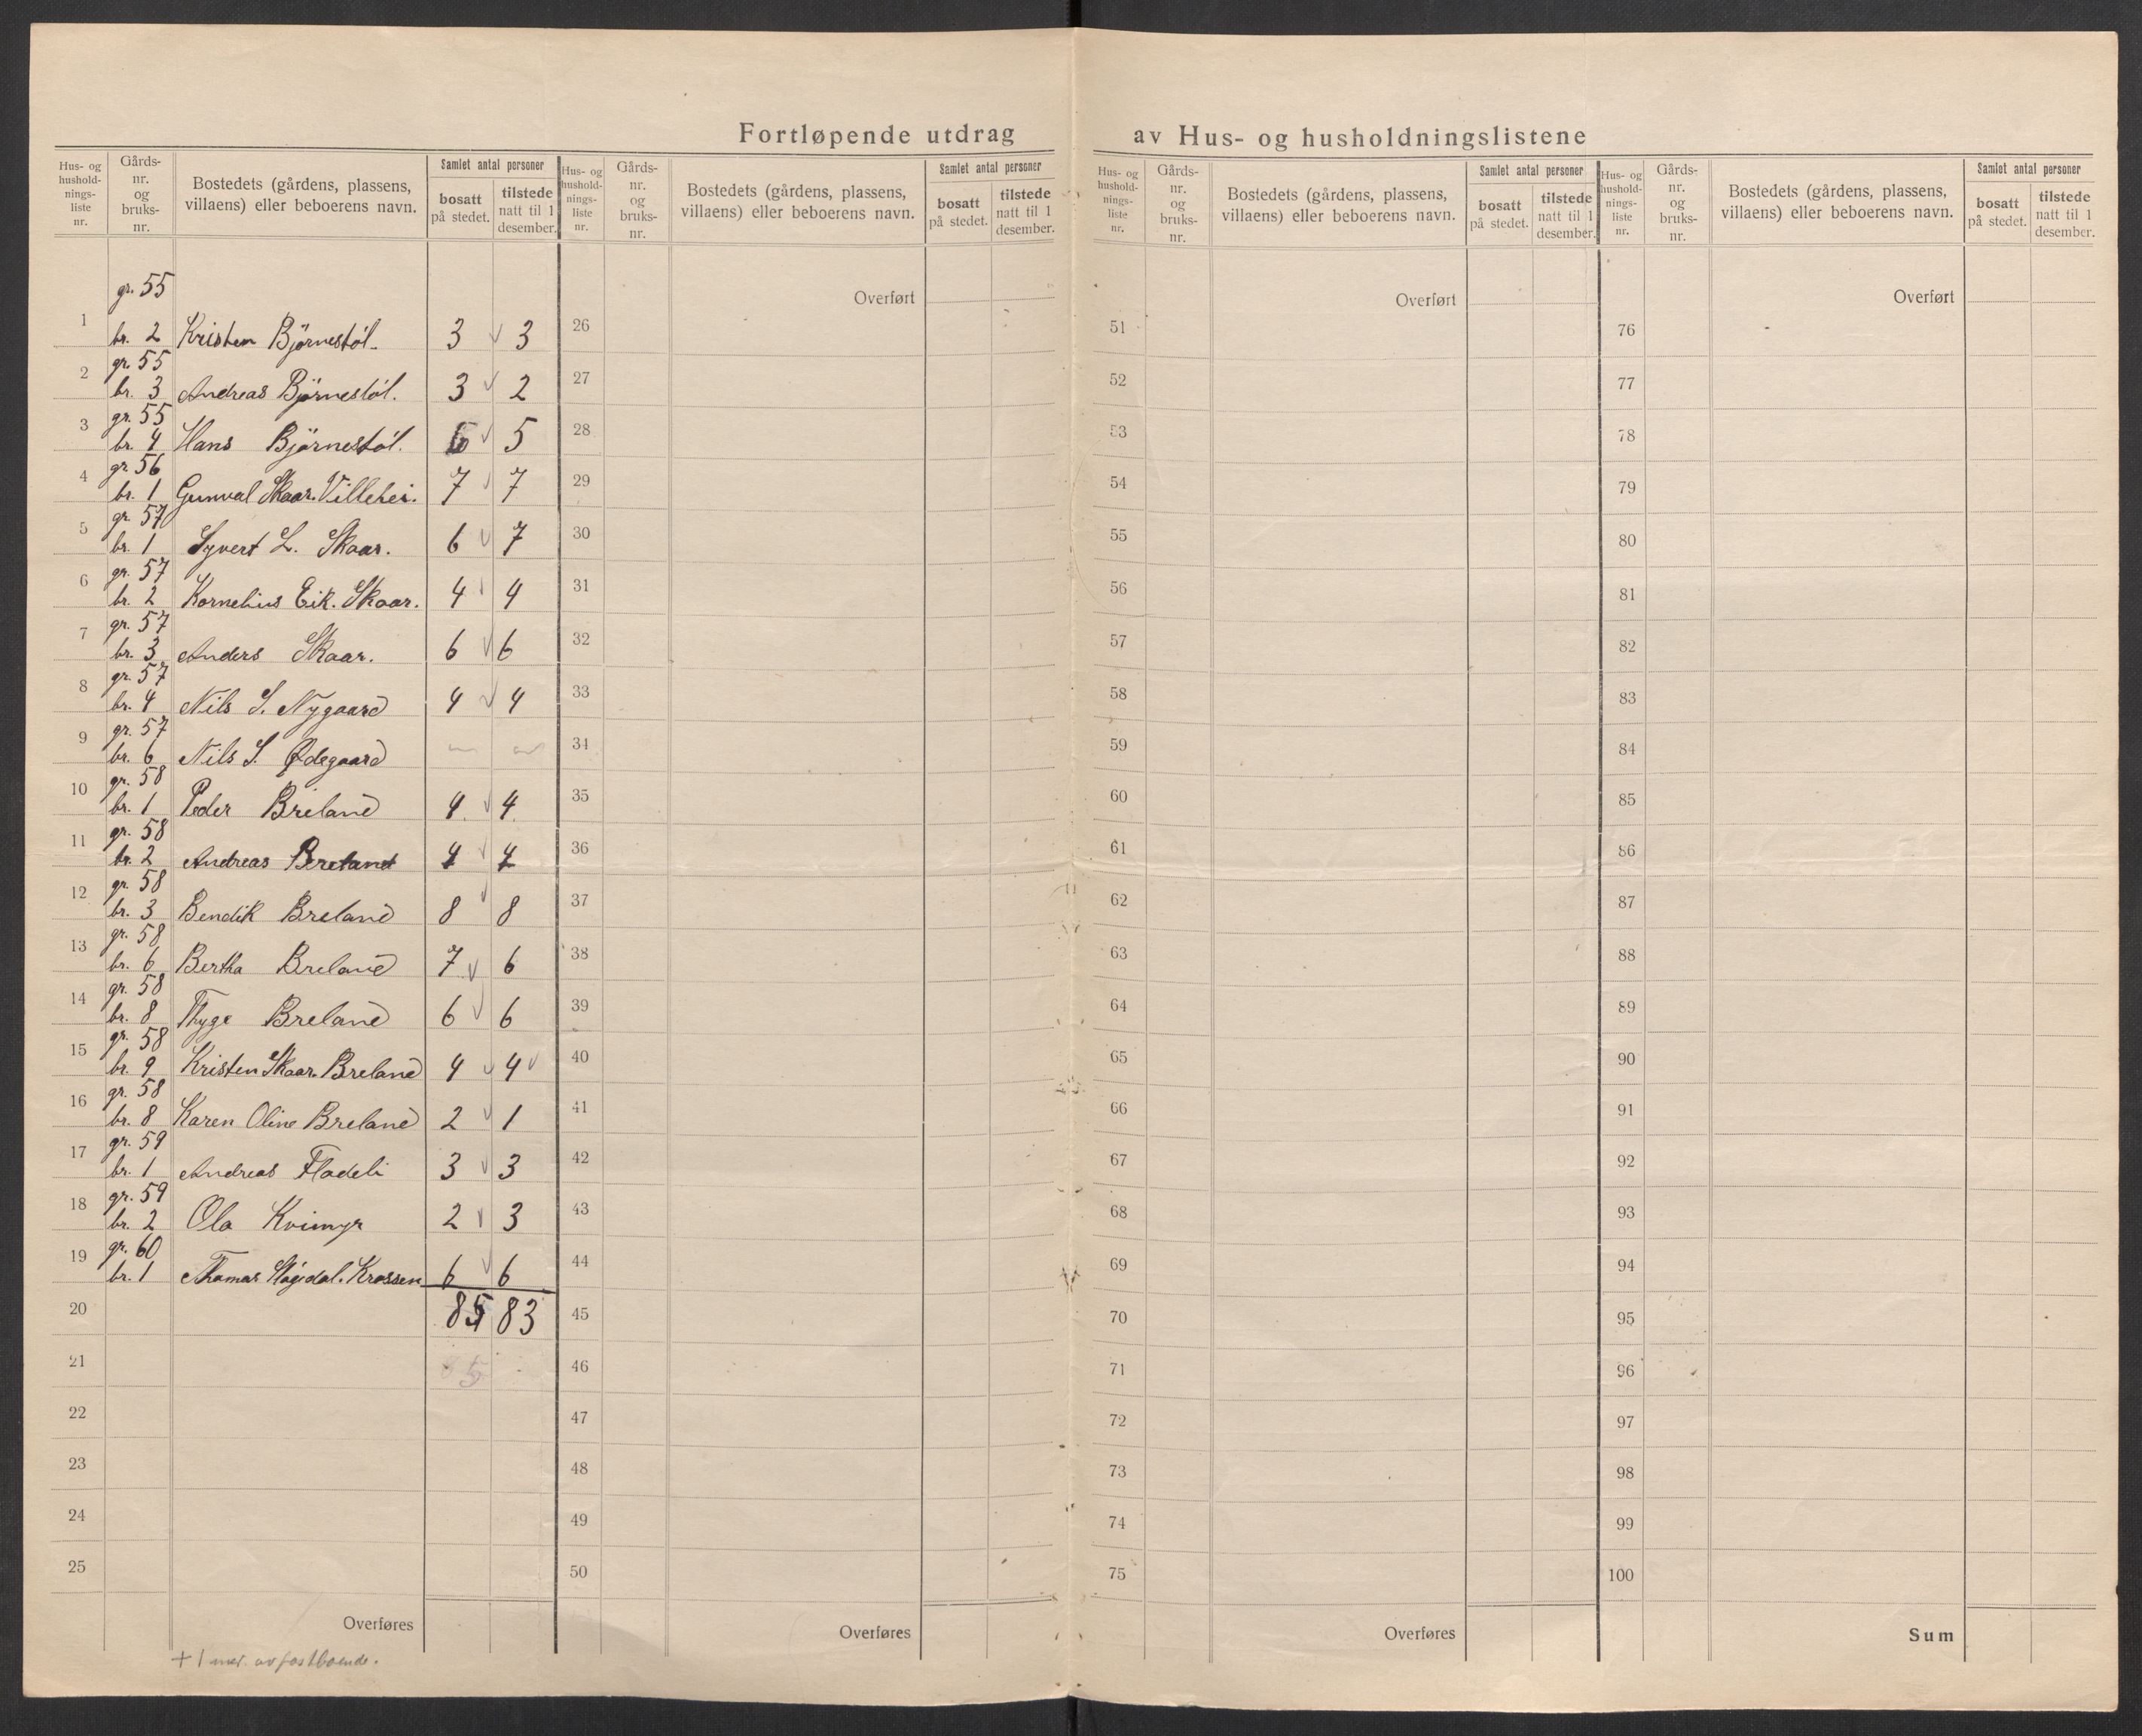 Fortløpende utdrag av Hus- og husholdningslistene
Hus- og hushold-nings-liste nr. Gårds-nr. og bruks-nr. Bostedets (gårdens, plassens, villaens) eller beboerens navn. Samlet antal personer bosatt på stedet. tilstede natt til 1 desember.
1 gr. 55 br. 2 Kristen Bjørnestöl. 3 3
2 gr. 55 br. 3 Andreas Bjørnestöl. 3 2
3 gr. 55 br. 4 Hans Bjørnestöl. 6 5
4 gr. 56 br. 1 Gunval Skaar. Villehei. 7 7
5 gr. 57 br. 1 Syvert L. Skaar. 6 7
6 gr. 57 br. 2 Kornelius Eik. Skaar. 4 4
7 gr. 57 br. 3 Anders Skaar. 6 6
8 gr. 57 br. 4 Nils S. Nygaard 4 4
9 gr. 57 br. 6 Nils S. Ødegaard
10 gr. 58 br. 1 Peder Breland 4 4
11 gr. 58 br. 2 Andreas Breland 4 4
12 gr. 58 br. 3 Bendik Breland 8 8
13 gr. 58 br. 6 Bertha Breland 7 6
14 gr. 58 br. 8 Thyge Breland 6 6
15 gr. 58 br. 9 Kristen Skaar. Breland 4 4
16 gr. 58 br. 8 Karen Oline Breland 2 1
17 gr. 59 br. 1 Andreas Fladeli 3 3
18 gr. 59 br. 2 Ola Kvimyr 2 3
19 gr. 60 br. 1 Thomas Høgedal. Krossen 6 6
20 85 83
21 5
22
23
24
25
Overføres
+ 1 mer. av fastboende.
Hus- og hushold-nings-liste nr. Gårds-nr. og bruks-nr. Bostedets (gårdens, plassens, villaens) eller beboerens navn. Samlet antal personer bosatt på stedet. tilstede natt til 1 desember.
Overført
26
27
28
29
30
31
32
33
34
35
36
37
38
39
40
41
42
43
44
45
46
47
48
49
50
Overføres
Hus- og hushold-nings-liste nr. Gårds-nr. og bruks-nr. Bostedets (gårdens, plassens, villaens) eller beboerens navn. Samlet antal personer bosatt på stedet. tilstede natt til 1 desember.
Overført
51
52
53
54
55
56
57
58
59
60
61
62
63
64
65
66
67
68
69
70
71
72
73
74
75
Overføres
Hus- og hushold-nings-liste nr. Gårds-nr. og bruks-nr. Bostedets (gårdens, plassens, villaens) eller beboerens navn. Samlet antal personer bosatt på stedet. tilstede natt til 1 desember.
Overført
76
77
78
79
80
81
82
83
84
85
86
87
88
89
90
91
92
93
94
95
96
97
98
99
100
Sum